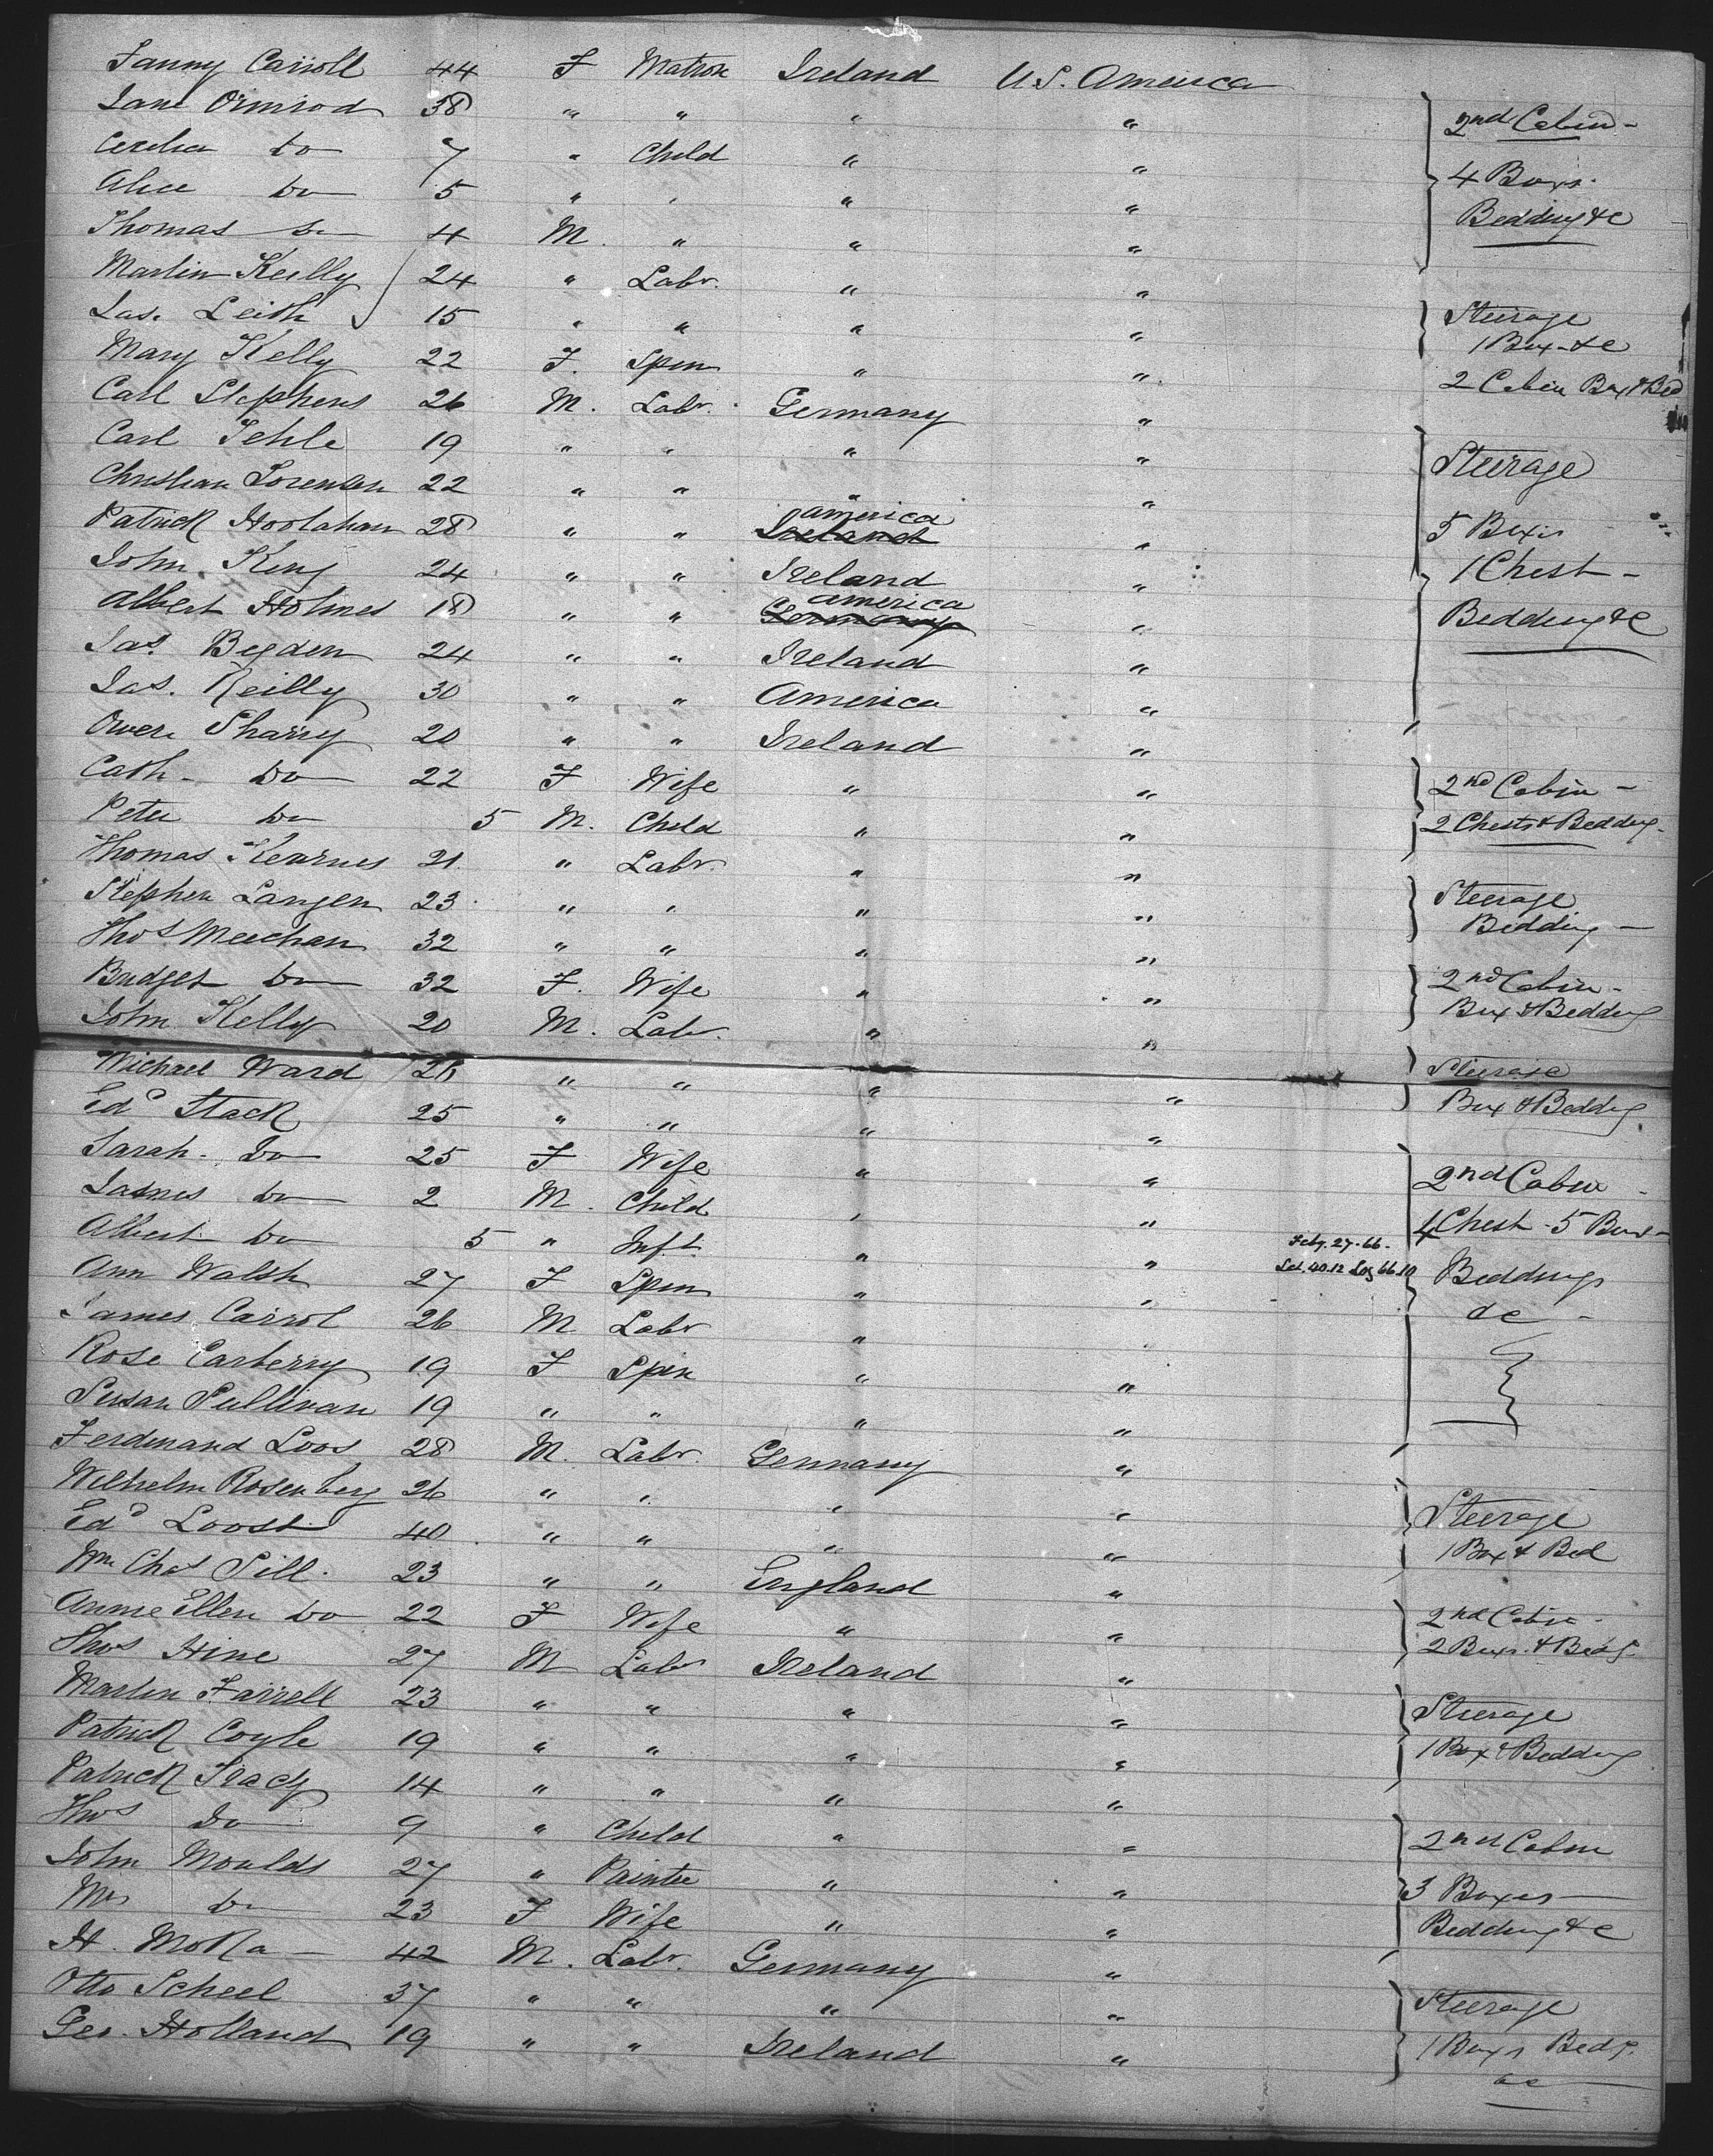 Fanny Carroll 44 F Matron Ireland U.S. America
Jane Ormrod 38 " " " " 2nd Cabin -
Cecelia Do 7 " Child " "
Alice Do 5 " " " " 4 Boxes
Thomas Do 4 M. " " " Bedding &c
Martin Kelly 24 " Labr. " "
Jas. Leith 15 " " " " Steerage
Mary Kelly 22 F. Spin " " 1 Box &c
Carl Stephens 26 M. Labr. Germany " 2 Cabin Box & Bed
Carl Jehle 19 " " " " Steerage
Christian Lorensen 22 " " " "
Patrick Hoolahan 28 " " America Ireland " 5 Boxes
John King 24 " " Ireland " 1 Chest -
Albert Holmes 18 " " America Germany " Bedding &c
Jas. Begden 24 " " Ireland "
Jas. Reilly 30 " " America "
Owen Sharry 20 " " Ireland "
Cath. Do 22 F Wife " " 2nd Cabin -
Peter Do 5 M. Child " " 2 Chests & Bedding.
Thomas Kearnes 21. " Labr. " "
Stephen Langen 23 " " " " Steerage
Thos Meechan 32 " " " " Bedding -
Bridget Do 32 F. Wife " " 2nd Cabin -
John Kelly 20 M. Labr. " " Box & Bedding
Michael Ward 28 " " " " Steerage
Edd Stack 25 " " " " Box & Bedding
Sarah. Do 25 F Wife " "
James Do 2 M. Child " " 2nd Cabin -
Albert Do 5 " Inft. " " Feby. 27-66- 1 Chest - 5 Boxes -
Ann Walsh 27 F Spin " " Let. 40.12 Log 66.10 Bedding
James Carrol 26 M Labr " " &c -
Rose Carberry 19 F Spin " "
Susan Sullivan 19 " " " "
Ferdinand Loos 28 M. Labr. Germany "
Wilhelm Rosenberg 26 " " " "
Edd Loost 40 " " " " Steerage
Wm Chas Sill. 23 " " England " 1 Box & Bed
Annie Ellen Do 22 F Wife " " 2nd Cabin -
Thos Hine 27 M Labr Ireland " 2 Boxes & Bedg.
Martin Farrell 23 " " " " Steerage
Patrick Coyle 19 " " " " 1 Box & Bedding
Patrick Tracy 14 " " " "
Thos Do 9 " Child " " 2nd Cabin
John Moulds 27 " Painter " "
Mrs Do 23 F Wife " " 3 Boxes -
H. Moka 42 M. Labr. Germany " Bedding &c
Otto Scheel 37 " " " " Steerage
Geo. Holland 19 " " Ireland " 1 Box Bedg.
&c